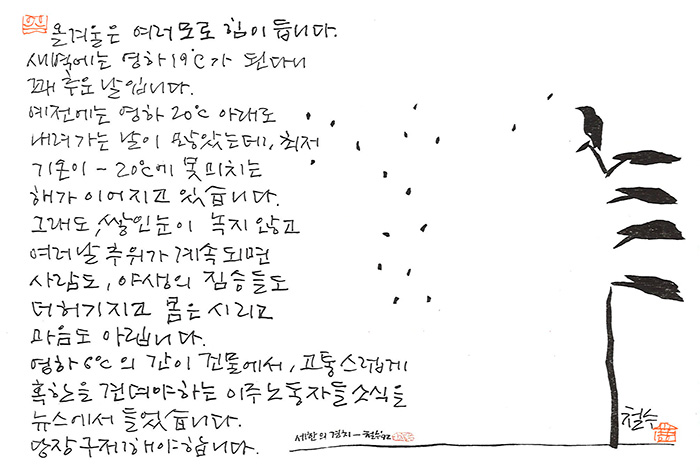 올겨울은 여러모로 힘이 듭니다.
새벽에는 영하 19℃가 된다니
꽤 추운 날입니다.
예전에는 영하 20℃ 아래로
내려가는 날이 많았는데, 최저
기온이 -20℃에 못미치는
해가 이어지고 있습니다.
그래도, 쌓인눈이 녹지 않고
여러날 추위가 계속되면
사람도, 야생의 짐승들도
더 허기지고 몸은 시리고
마음도 아립니다.
영하 6℃의 간이 건물에서, 고통스럽게
혹한을 견뎌야하는 이주노동자들 소식을
뉴스에서 들었습니다.
당장 구제해야합니다.
세한의 경치 - 철수 92
철수